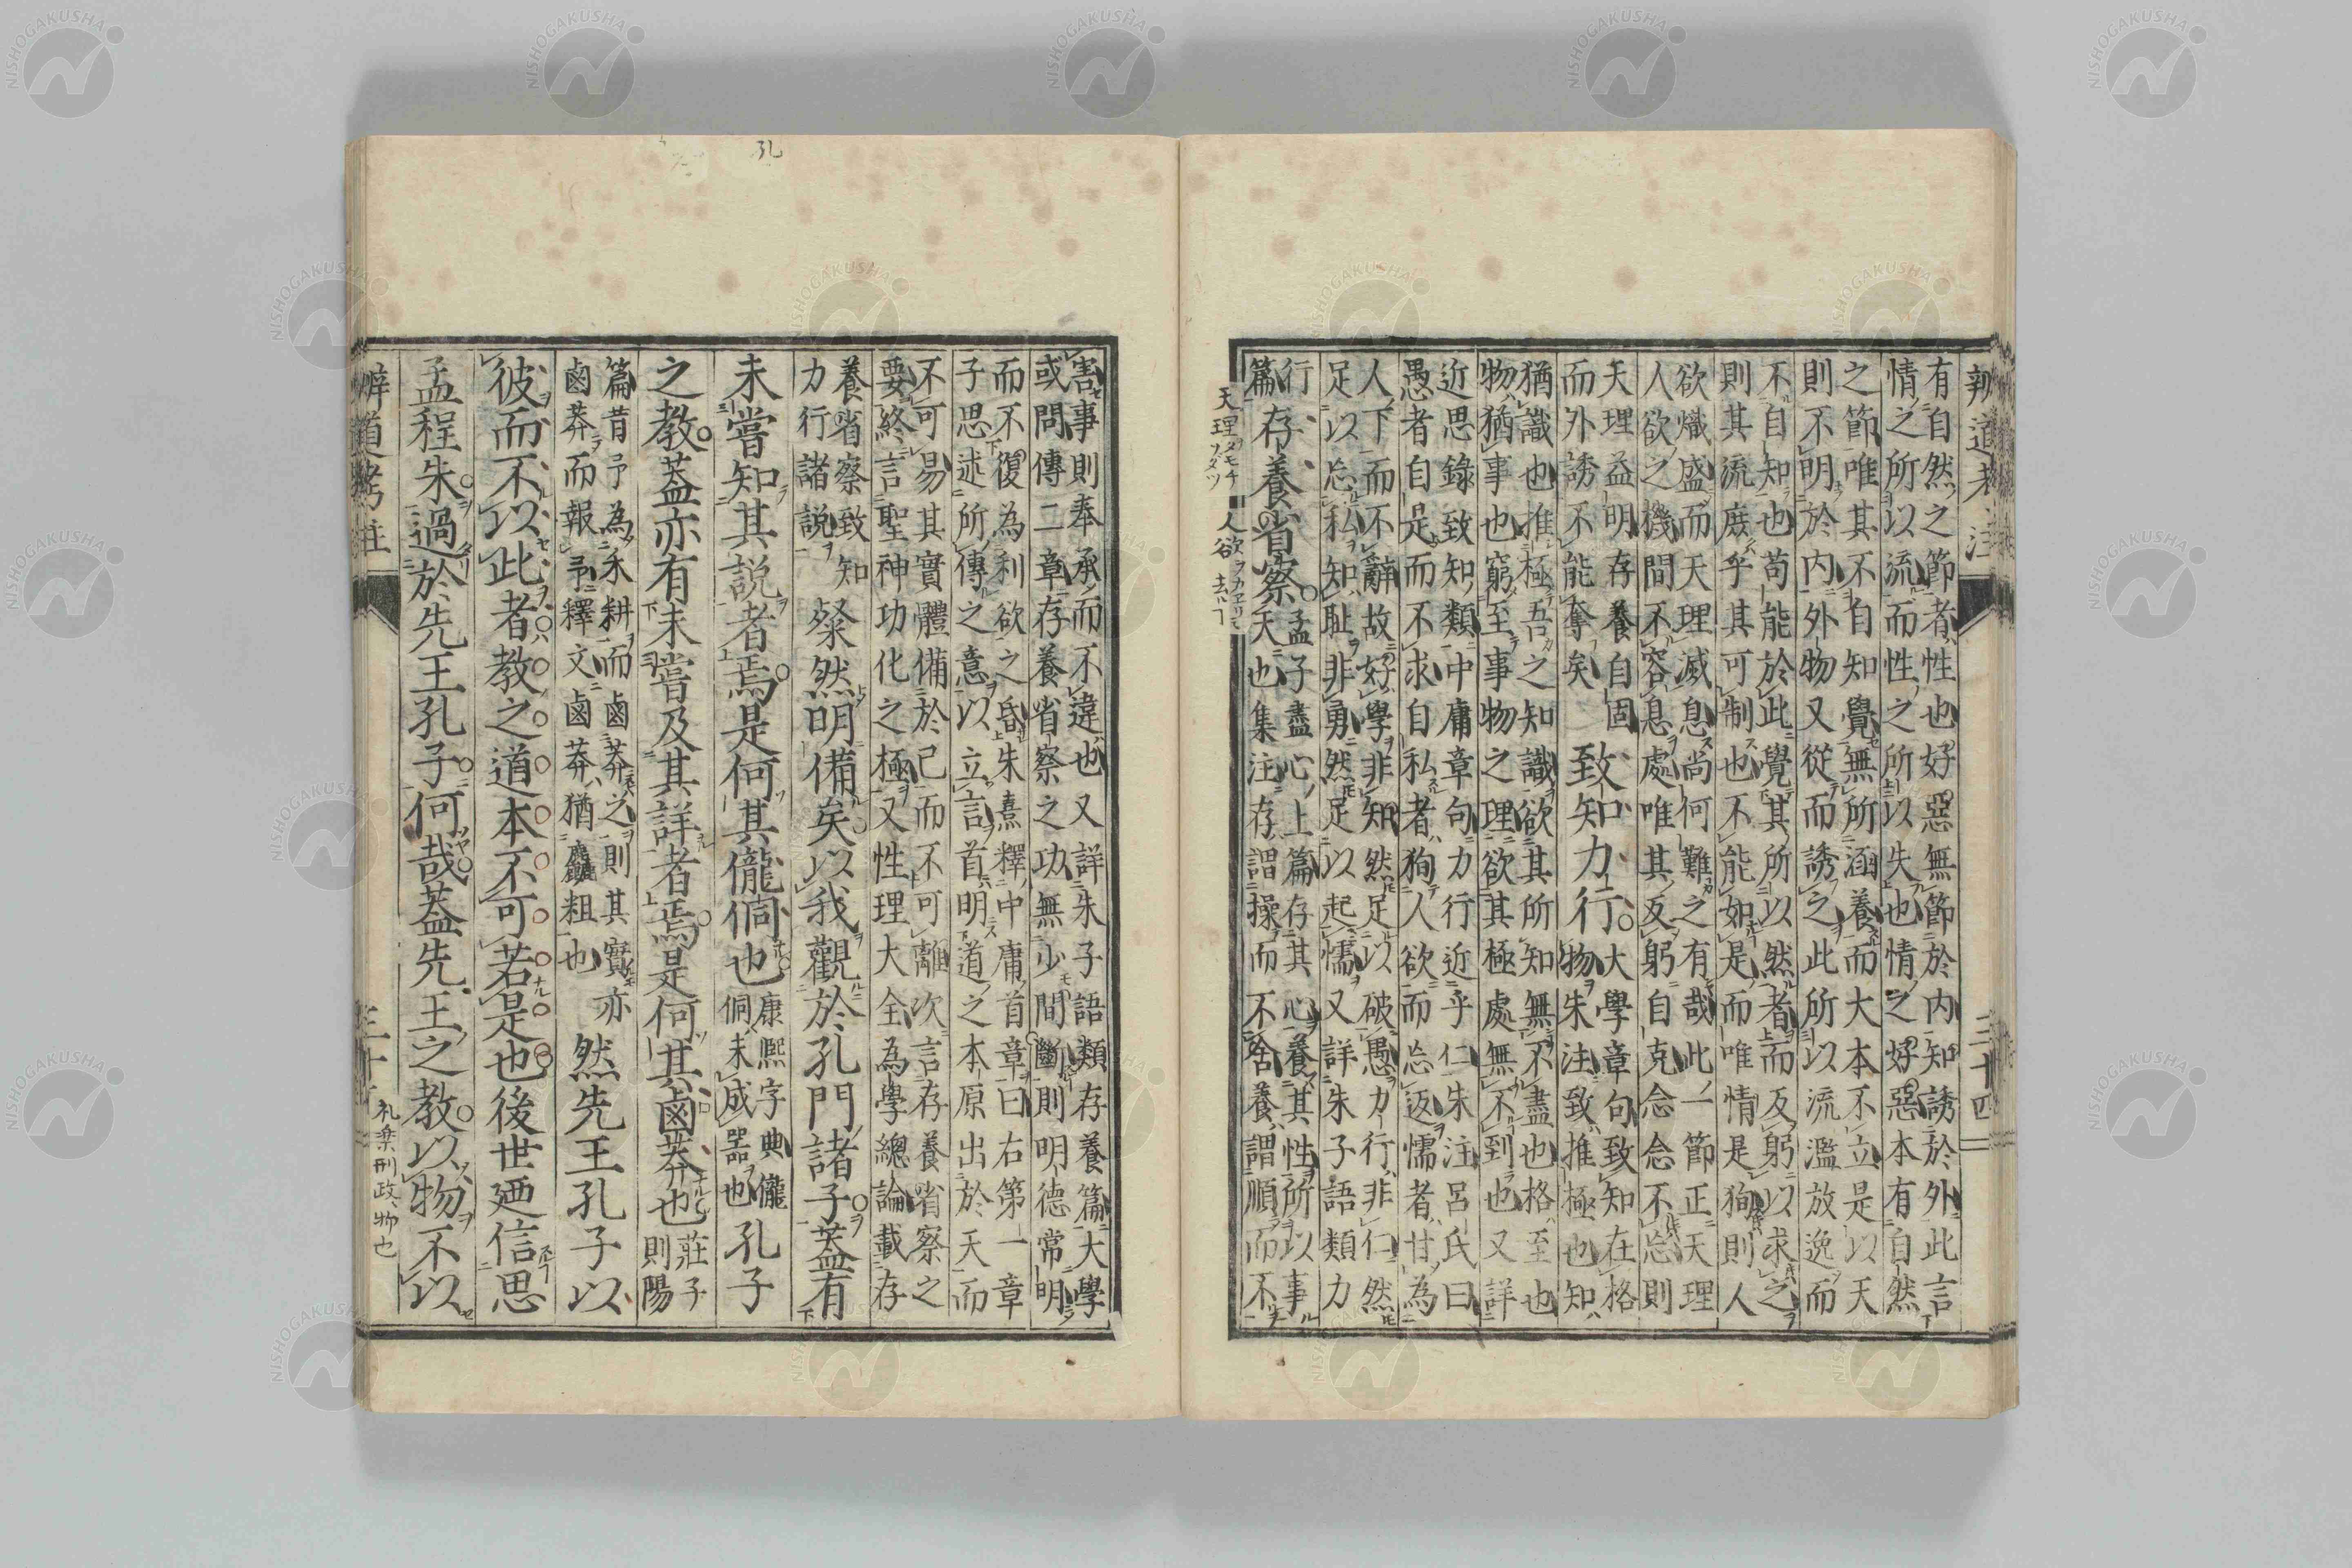 辨道考注 三十四
有自然之節者性也好惡無節於内知誘於外此言
情之所以流而性之所以失也情之好惡本有自然
之節唯其不自知覺無所涵養而大本不立是以天
則不明於内外物又從而誘之此所以流濫放逸而
不自知也苟能於此覺其所以然者而反躬以求之
則其流庶乎其可制也不能如是而唯情是狥則人
欲熾盛而天理滅息尚何難之有哉此一節正天理
人欲之機間不容息處唯其反躬自克念念不忘則
天理益明存養自固
而外誘不能奪矣
致知力行
大學章句致知在格
物朱注致推極也知
猶識也推極吾之知識欲其所知無不盡也格至也
物猶事也窮至事物之理欲其極處無不到也又詳
近思錄致知類中庸章句力行近乎仁朱注呂氏曰
愚者自是而不求自私者狥人欲而忘返懦者甘為
人下而不辭故好學非知然足以破愚力行非仁然
足以忘私知恥非勇然足以起懦又詳朱子語類力
行
篇
存養省察
孟子盡心上篇存其心養其性所以事
天也集注存謂操而不舍養謂順而不
天理タモチソダツ 人欲
害事則奉承而不違也又詳朱子語類存養篇大學
或問傳二章存養省察之功無少間斷則明德常明
而不復為利欲之昏朱熹釋中庸首章曰右第一章
子思述所傳之意以立言首明道之本原出於天而
不可易其實體備於己而不可離次言存養省察之
要終言聖神功化之極又性理大全為學總論載存
養省察致知
力行諸說
粲然明備矣以我觀於孔門諸子蓋有
未嘗知其說者焉是何其儱侗也
康熙字典儱
侗未成器也
孔子
之教蓋亦有未嘗及其詳者焉是何其鹵莽也
莊子
則陽
篇昔予為禾耕而鹵莽之則其實亦
鹵莽而報予釋文鹵莽猶麤粗也
然先王孔子以
彼而不以此者教之道本不可若是也後世廼信思
孟程朱過於先王孔子何哉蓋先王之教以物不以
辨道考註
礼樂刑政物也
孔
NISHOGAKUSHA